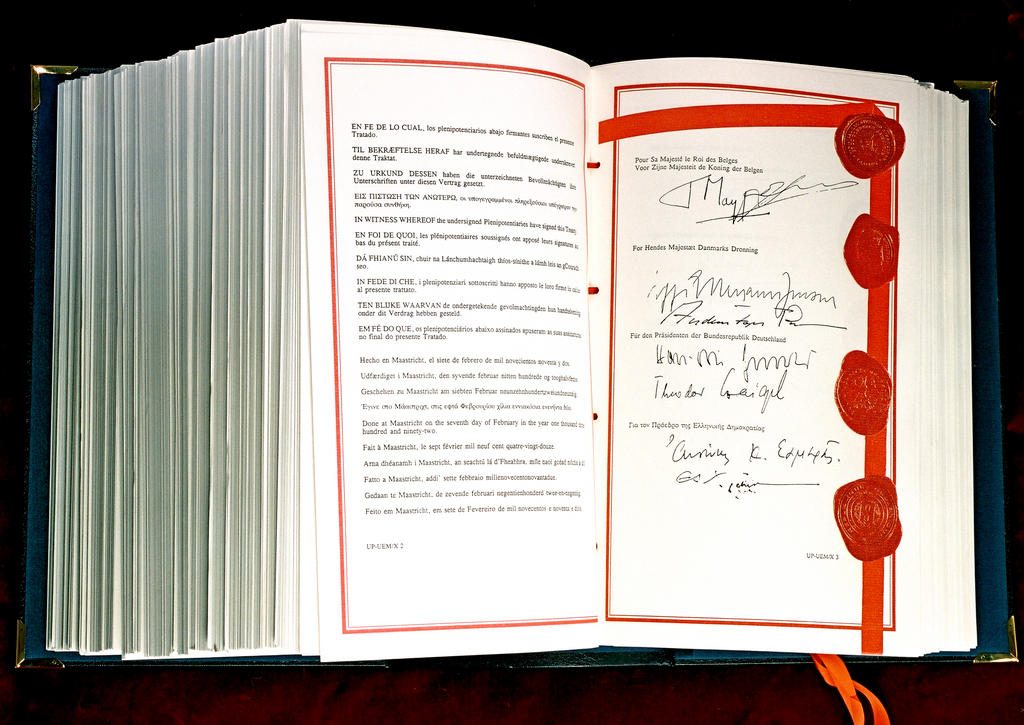 EN FE DE LO CUAL, los plenipotenciarios abajo firmantes suscriben el presente
Tratado.
TIL BEKRÆFTELSE HERAF har undertegnede befuldmægtigede underskrevet
denne Traktat.
ZU URKUND DESSEN haben die unterzeichneten Bevollmächtigten ihre
Unterschriften unter diesen Vertrag gesetzt.
ΕΙΣ ΠΙΣΤΩΣΗ ΤΩΝ ΑΝΩΤΕΡΩ, οι υπογεγραμμένοι πληρεξούσιοι υπέγραψαν την
παρούσα συνθήκη.
IN WITNESS WHEREOF the undersigned Plenipotentiaries have signed this Treaty.
EN FOI DE QUOI, les plénipotentiaires soussignés ont apposé leurs signatures au
bas du présent traité.
DÁ FHIANÚ SIN, chuir na Lánchumhachtaigh thíos-sínithe a lámh leis an gConradh
seo.
IN FEDE DI CHE, i plenipotenziari sottoscritti hanno apposto le loro firme in calce
al presente trattato.
TEN BLIJKE WAARVAN de ondergetekende gevolmachtigden hun handtekening
onder dit Verdrag hebben gesteld.
EM FÉ DO QUE, os plenipotenciários abaixo assinados apuseram as suas assinaturas
no final do presente Tratado.
Hecho en Maastricht, el siete de febrero de mil novecientos noventa y dos.
Udfærdiget i Maastricht, den syvende februar nitten hundrede og tooghalvfems.
Geschehen zu Maastricht am siebten Februar neunzehnhundertzweiundneunzig.
Έγινε στο Μάαστριχτ, στις εφτά Φεβρουαρίου χίλια εννιακόσια ενενήντα δύο.
Done at Maastricht on the seventh day of February in the year one thousand nine
hundred and ninety-two.
Fait à Maastricht, le sept février mil neuf cent quatre-vingt-douze.
Arna dhéanamh i Maastricht, an seachtú lá d'Fheabhra, míle naoi gcéad nócha a dó.
Fatto a Maastricht, addi' sette febbraio millenovecentonovantadue.
Gedaan te Maastricht, de zevende februari negentienhonderd twee-en-negentig.
Feito em Maastricht, em sete de Fevereiro de mil novecentos e noventa e dois.
UP-UEM/X 2
Pour Sa Majesté le Roi des Belges
Voor Zijne Majesteit de Koning der Belgen
For Hendes Majestæt Danmarks Dronning
Für den Präsidenten der Bundesrepublik Deutschland
Theodor Waigel
Για τον Πρόεδρο της Ελληνικής Δημοκρατίας
UP-UEM/X 3